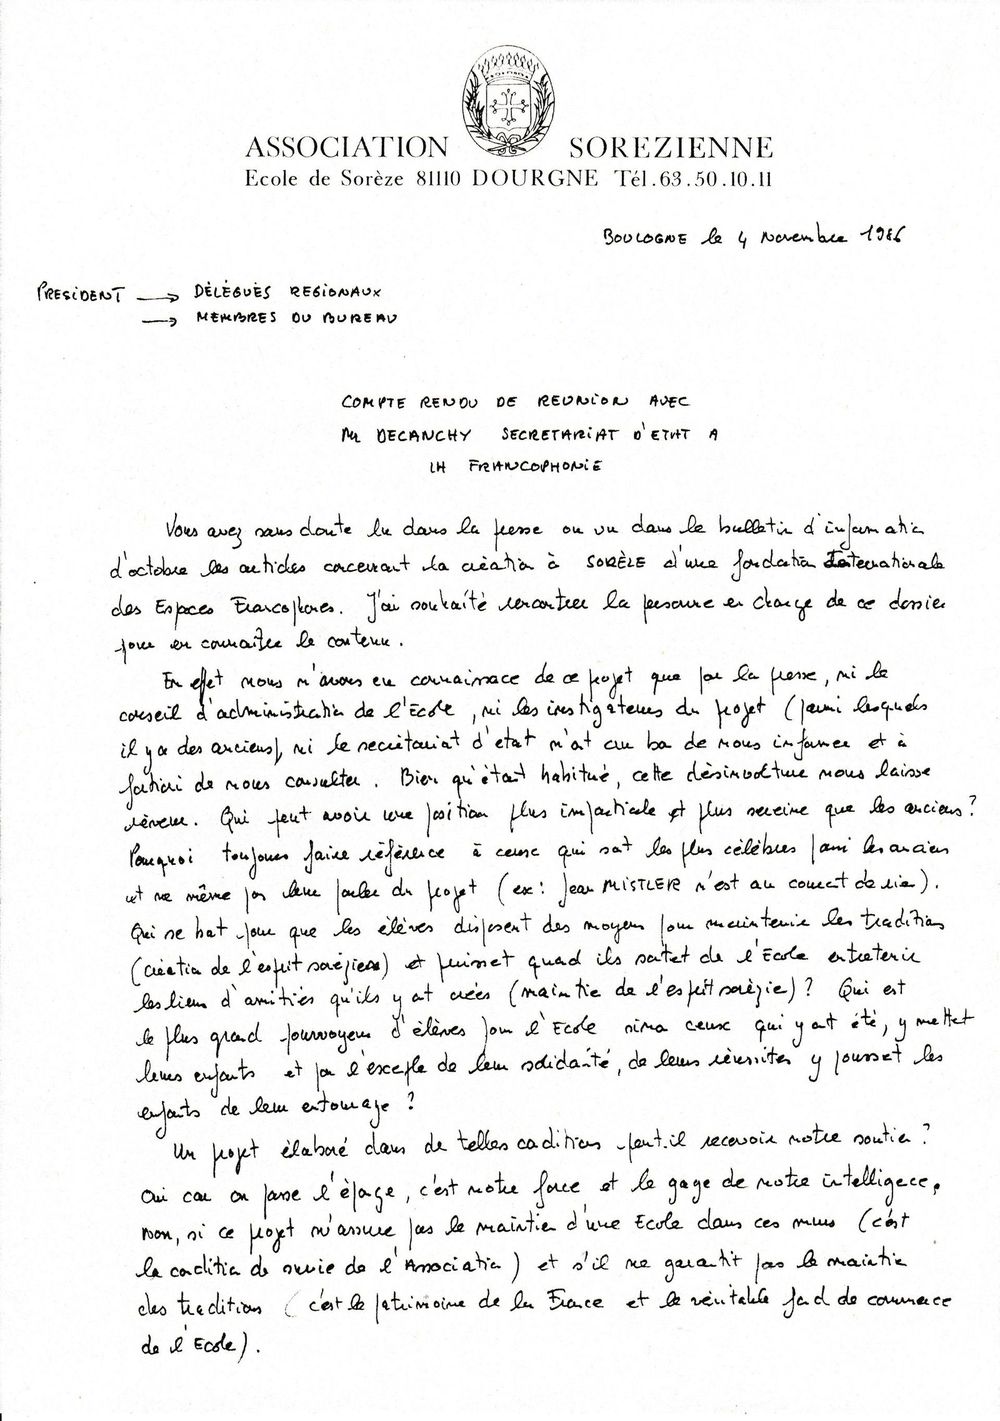 ASSOCIATION SOREZIENNE
Ecole de Sorèze 81110 DOURGNE Tél.63.50.10.11
BOULOGNE le 4 Novembre 1986
PRESIDENT → DÉLÉGUÉS REGIONAUX
→ MEMBRES DU BUREAU
COMPTE RENDU DE REUNION AVEC
Mr DECANCHY SECRETARIAT D'ETAT A
LA FRANCOPHONIE
Vous avez sans doute lu dans la presse ou vu dans le bulletin d'information
d'octobre les articles concernant la création à SORÈZE d'une fondation Internationale
des Espaces Francophones. J'ai souhaité rencontrer la personne en charge de ce dossier
pour en connaitre le contenu.
En effet nous n'avons eu connaissance de ce projet que par la presse, ni le
conseil d'administration de l'Ecole, ni les investigateurs du projet (parmi lesquels
il y a des anciens), ni le secrétariat d'etat n'ont cru bon de nous informer et à
fortiori de nous consulter. Bien qu'étant habitué, cette désinvolture nous laisse
rêveur. Qui peut avoir une position plus impartiale et plus sereine que les anciens?
Pourquoi toujours faire référence à ceux qui sont les plus célèbres parmi les anciens
et ne même pas leur parler du projet (ex: Jean MISTLER n'est au courant de rien).
Qui se bat pour que les élèves disposent des moyens pour maintenir les traditions
(création de l'esprit sorézien) et puissent quand ils sortent de l'Ecole entretenir
les liens d'amitiés qu'ils y ont créés (maintien de l'esprit sorézien)? Qui est
le plus grand pourvoyeur d'élèves pour l'Ecole sinon ceux qui y ont été, y mettent
leurs enfants et par l'exemple de leur solidarité, de leurs réussites y poussent les
enfants de leur entourage?
Un projet élaboré dans de telles conditions peut-il recevoir notre soutien?
Oui car on passe l'éponge, c'est notre force et le gage de notre intelligence.
Non, si ce projet n'assure pas le maintien d'une Ecole dans ces murs (c'est
la condition de survie de l'Association) et s'il ne garantit pas le maintien
des traditions (c'est le patrimoine de la France et le véritable fond de commerce
de l'Ecole).